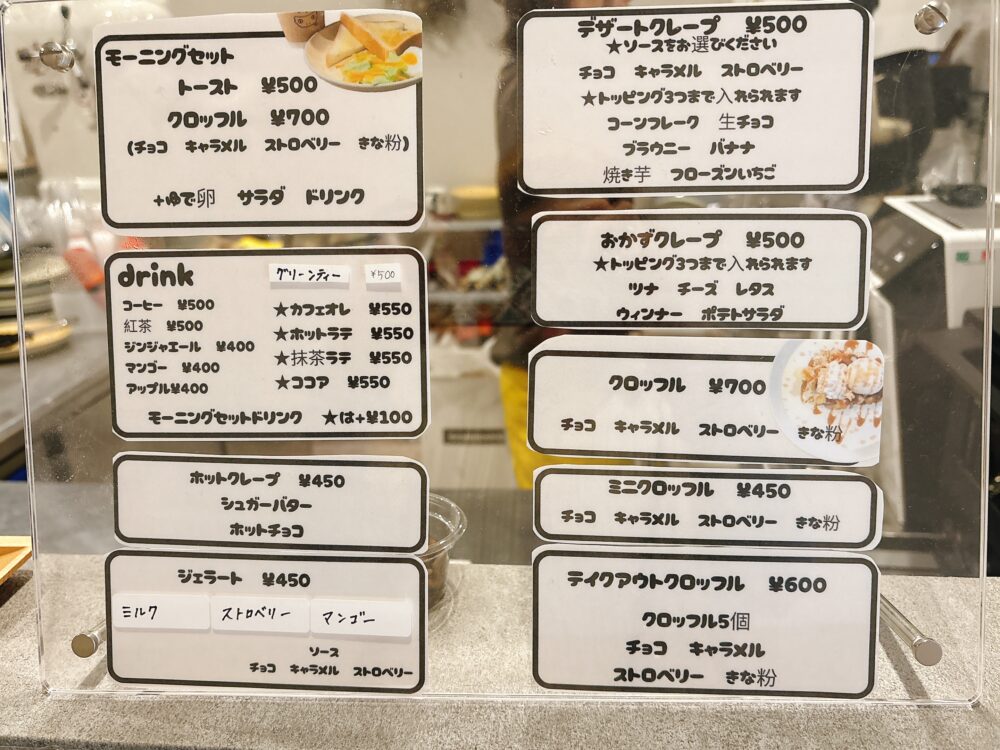 モーニングセット
トースト ¥500
クロッフル ¥700
(チョコ キャラメル ストロベリー きな粉)
+ゆで卵 サラダ ドリンク
drink
グリーンティー ¥500
コーヒー ¥500
紅茶 ¥500
ジンジャエール ¥400
マンゴー ¥400
アップル¥400
★カフェオレ ¥550
★ホットラテ ¥550
★抹茶ラテ ¥550
★ココア ¥550
モーニングセットドリンク ★は+¥100
ホットクレープ ¥450
シュガーバター
ホットチョコ
ジェラート ¥450
ミルク ストロベリー マンゴー
ソース
チョコ キャラメル ストロベリー
デザートクレープ ¥500
★ソースをお選びください
チョコ キャラメル ストロベリー
★トッピング3つまで入れられます
コーンフレーク 生チョコ
ブラウニー バナナ
焼き芋 フローズンいちご
おかずクレープ ¥500
★トッピング3つまで入れられます
ツナ チーズ レタス
ウィンナー ポテトサラダ
クロッフル ¥700
チョコ キャラメル ストロベリー きな粉
ミニクロッフル ¥450
チョコ キャラメル ストロベリー きな粉
テイクアウトクロッフル ¥600
クロッフル5個
チョコ キャラメル
ストロベリー きな粉